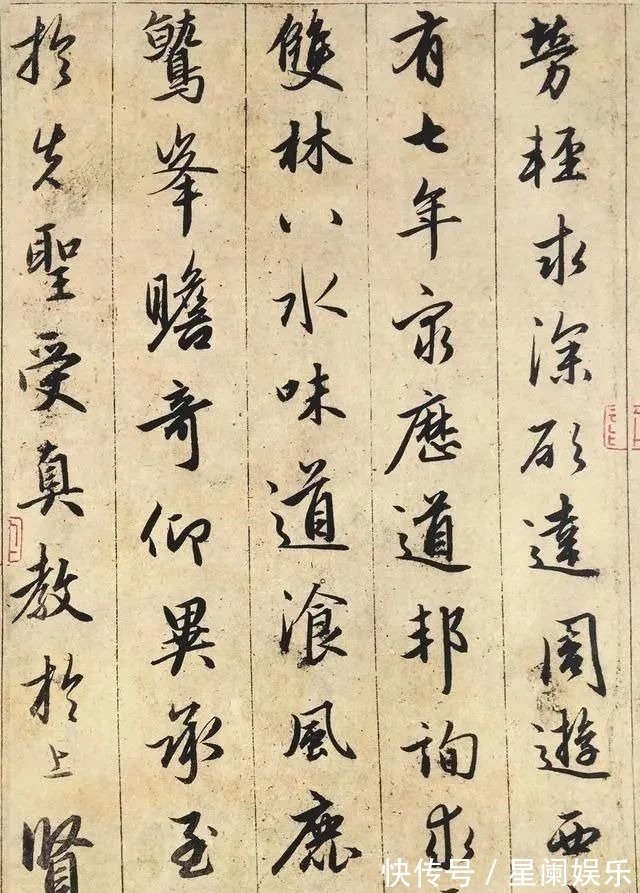 勞輕求深願達周遊西
有七年窮歷道邦詢求
雙林八水味道湌風鹿
鷲峯瞻奇仰異承至
於先聖受真教於上賢
快传号 / 星阑娱乐